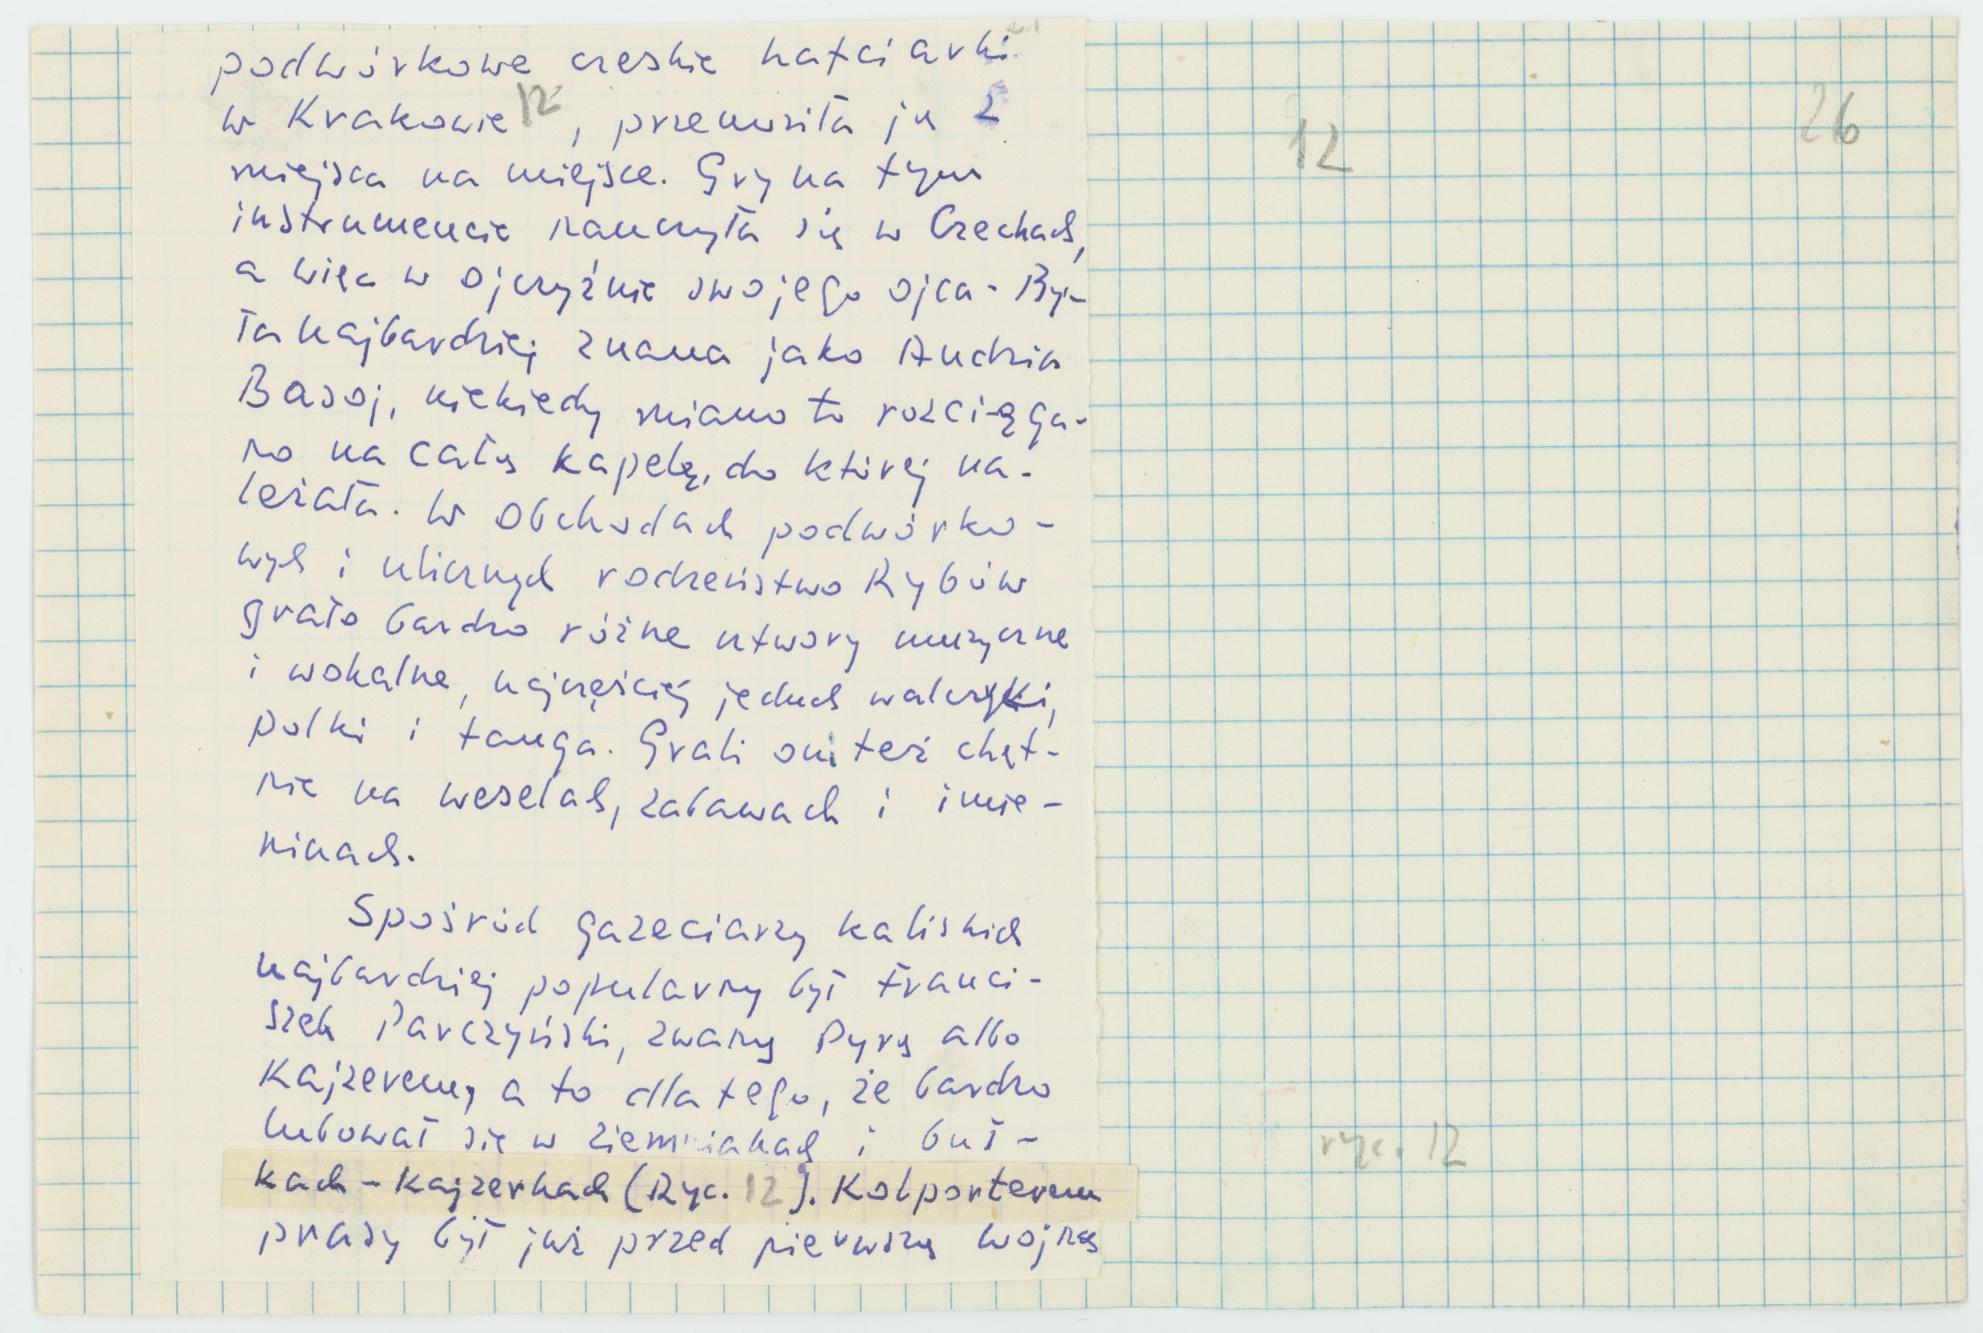 podwórkowe czeskie harfiarki
w Krakowie 12, przenosiła ją z
miejsca na miejsce. Gry na tym
instrumencie nauczyła się w Czechach,
a więc w ojczyźnie swojego ojca. By-
ła najbardziej znana jako Andzia
Basoj, niekiedy miano to rozciąga-
no na całą kapelę, do której na-
leżała. W obchodach podwórko-
wych i ulicznych rodzeństwo Rybów
grało bardzo różne utwory muzyczne
i wokalne, najczęściej jednak walczyki,
polki i tanga. Grali oni też chęt-
nie na weselach, zabawach i imie-
ninach.
Spośród gazeciarzy kaliskich
najbardziej popularny był Franci-
szek Parczyński, zwany Pyrą albo
Kajzerem, a to dlatego, że bardzo
lubował się w ziemniakach i buł-
kach-kajzerkach (Ryc. 12). Kolporterem
prasy był już przed pierwszą wojną
12
26
ryc. 12